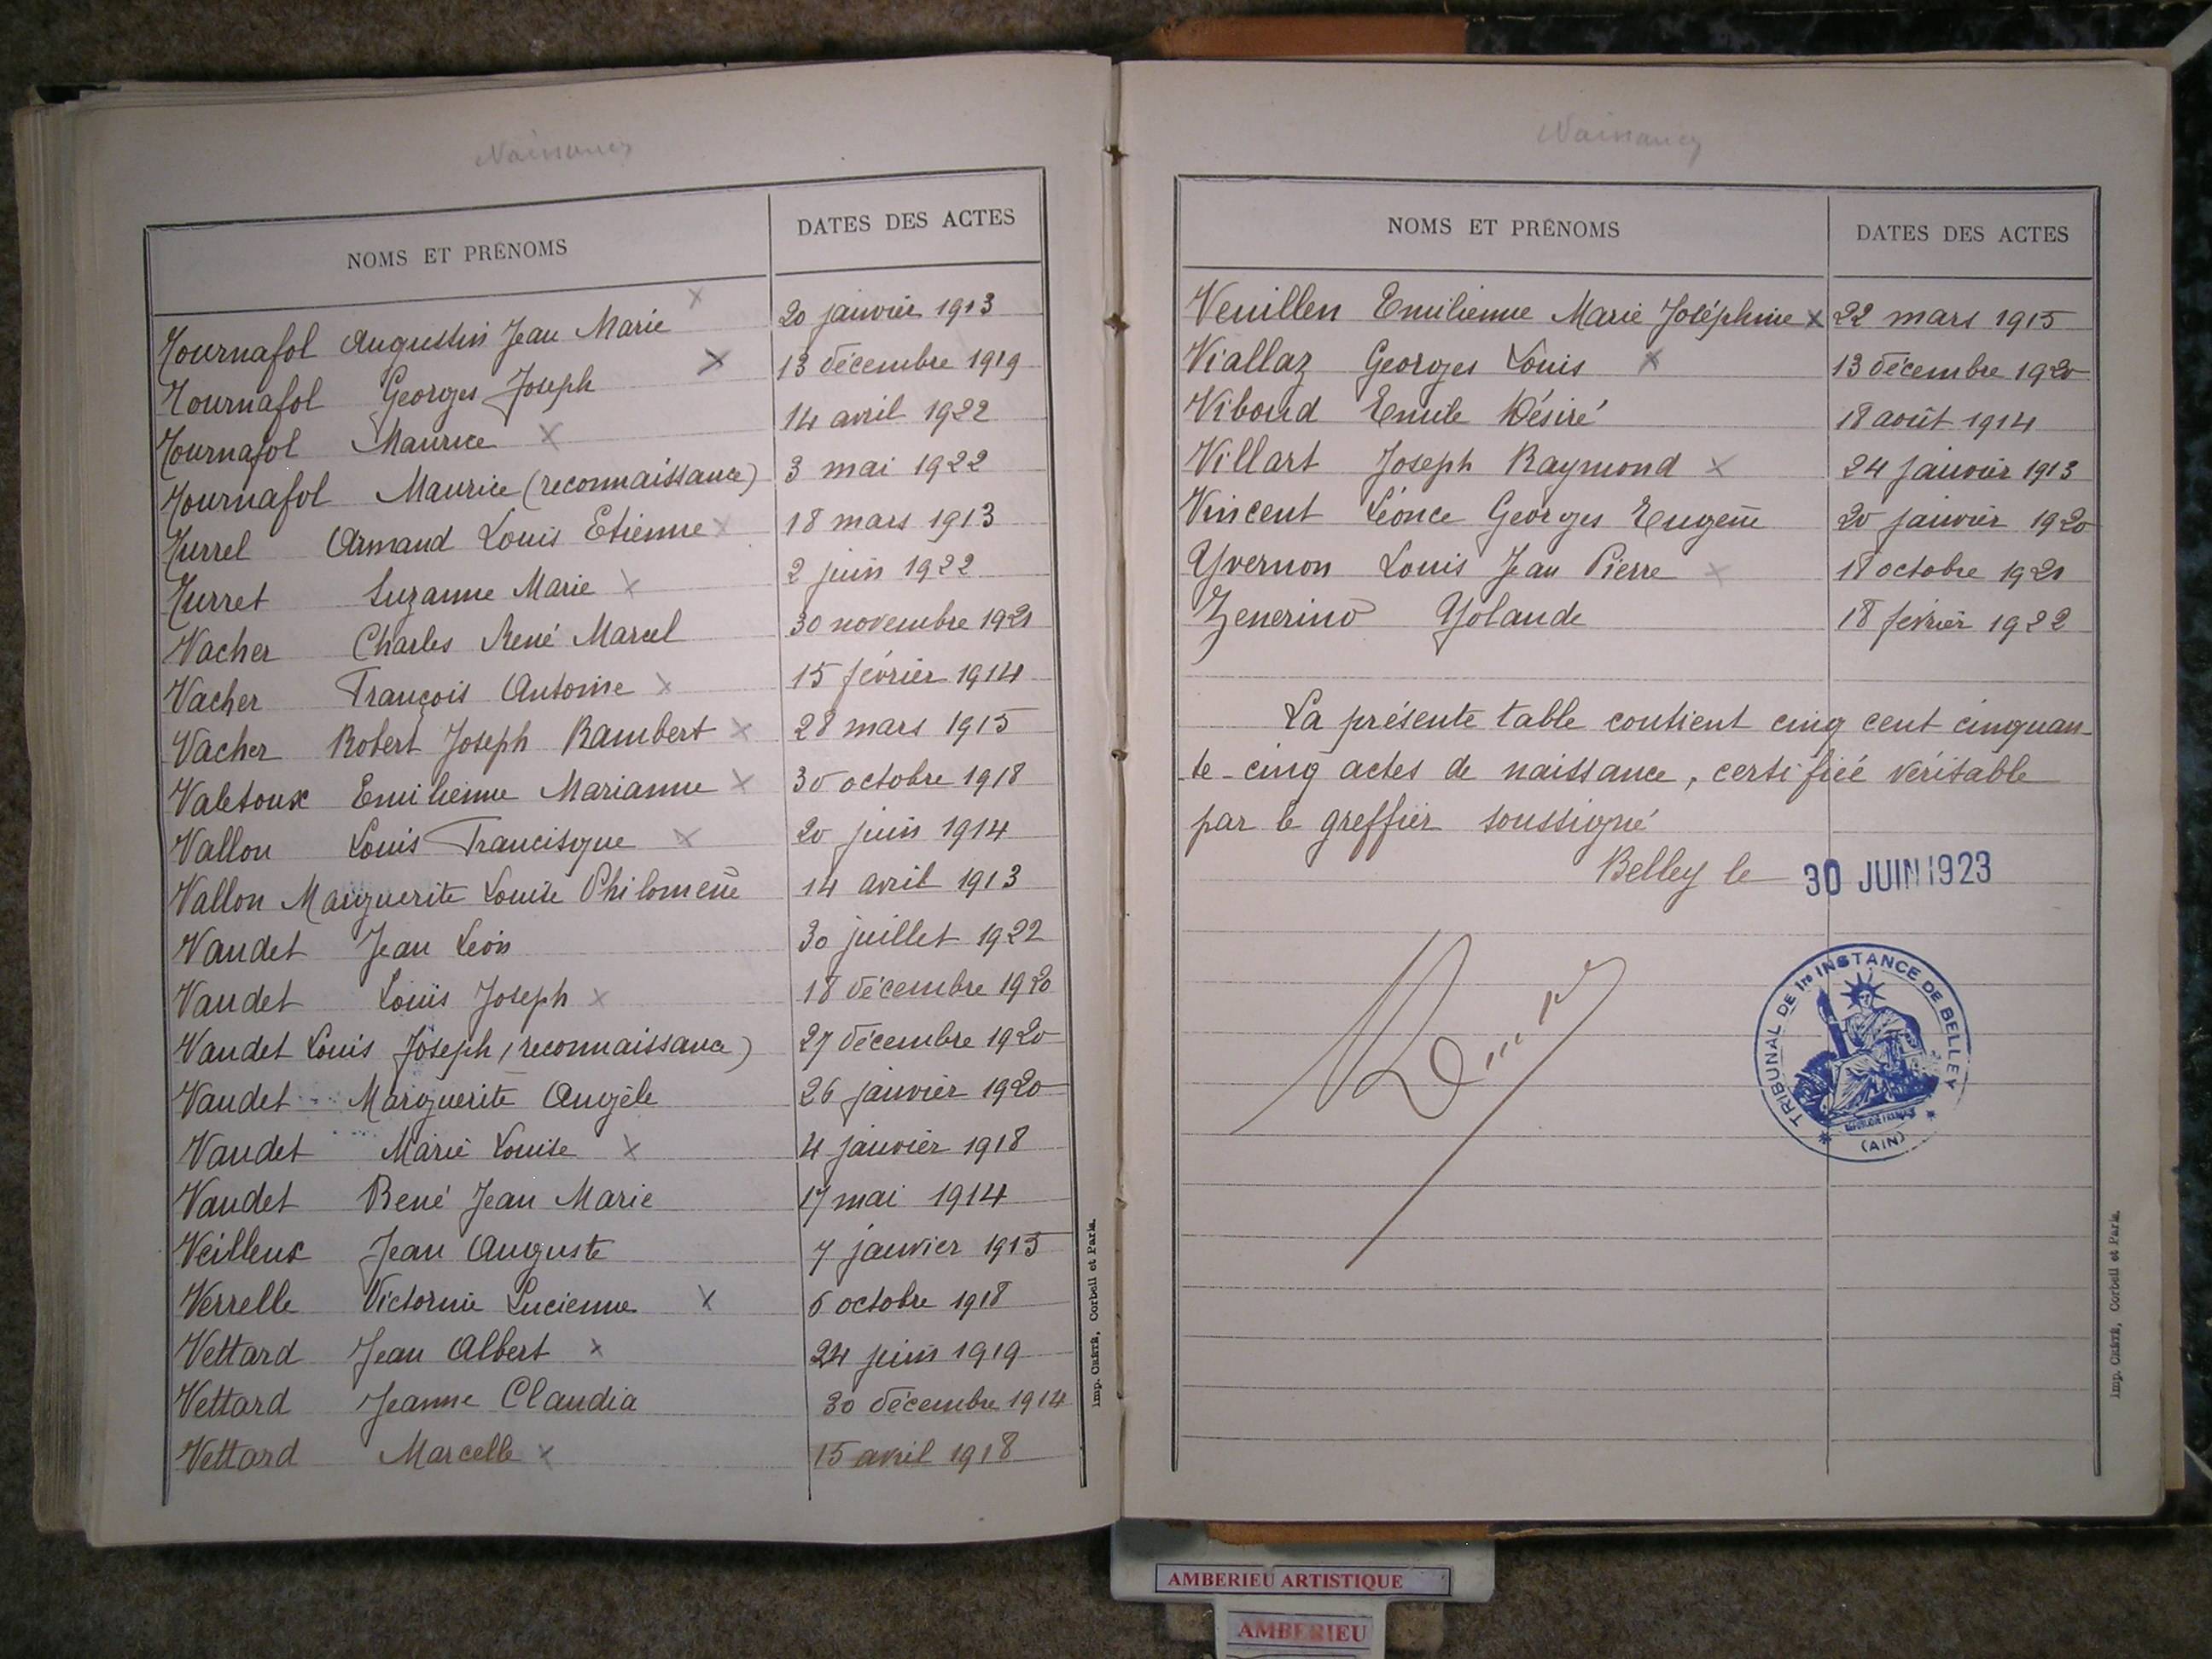 Naissances
NOMS ET PRÉNOMS DATES DES ACTES
Tournafol Augustin Jean Marie x 20 janvier 1913
Tournafol Georges Joseph x 13 décembre 1919
Tournafol Maurice x 14 avril 1922
Tournafol Maurice (reconnaissance) 3 mai 1922
Turrel Armand Louis Etienne x 18 mars 1913
Turret Suzanne Marie x 2 juin 1922
Vacher Charles René Marcel 30 novembre 1921
Vacher François Antoine x 15 février 1914
Vacher Robert Joseph Rambert x 28 mars 1915
Valetoux Emilienne Marianne x 30 octobre 1918
Vallon Louis Francisque x 20 juin 1914
Vallon Marguerite Louise Philomène 14 avril 1913
Vaudet Jean Léon 30 juillet 1922
Vaudet Louis Joseph x 18 décembre 1920
Vaudet Louis Joseph (reconnaissance) 27 décembre 1920
Vaudet Marguerite Angèle 26 janvier 1920
Vaudet Marie Louise x 4 janvier 1918
Vaudet René Jean Marie 17 mai 1914
Veilleux Jean Auguste 7 janvier 1915
Verrelle Victorine Lucienne x 6 octobre 1918
Vettard Jean Albert x 24 juin 1919
Vettard Jeanne Claudia 30 décembre 1914
Vettard Marcelle x 15 avril 1918
Imp. CRÉTÉ, Corbeil et Paris.
Naissances
NOMS ET PRÉNOMS DATES DES ACTES
Venillen Emilienne Marie Joséphine x 22 mars 1915
Viallaz Georges Louis x 13 décembre 1920
Viboud Emile Désiré 18 août 1914
Villart Joseph Raymond x 24 janvier 1913
Vincent Léonce Georges Eugène 20 janvier 1920
Yvernon Louis Jean Pierre x 18 octobre 1921
Zenerino Yolande 18 février 1922
La présente table contient cinq cent cinquan-
te-cinq actes de naissance, certifiée véritable
par le greffier soussigné
Belley le 30 JUIN 1923
TRIBUNAL DE 1re INSTANCE DE BELLEY
RÉPUBLIQUE FRANÇAISE
(AIN)
Imp. CRÉTÉ, Corbeil et Paris.
AMBERIEU ARTISTIQUE
AMBERIEU